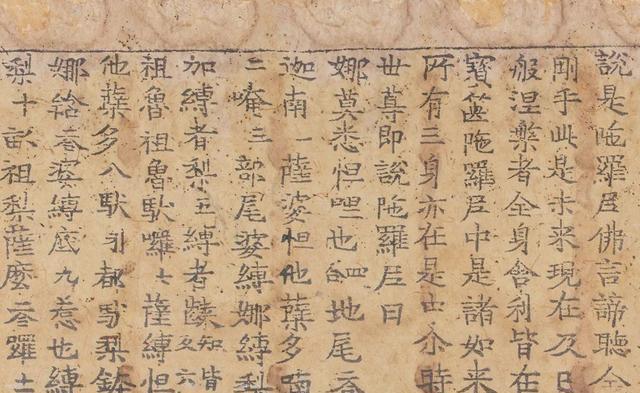 說是陁羅尼佛言諦聽金
剛手此是未来現在及已
般涅槃者全身舎利皆在
寳篋陁羅尼中是諸如来
所有三身亦在是中尒時
世尊即說陁羅尼曰
娜莫悉怛哩也四合地尾
迦南一薩婆怛他蘖多喃
二唵三部尾婆嚩娜嚩梨
嚩者梨五嚩者知皆六
祖魯祖魯馱囉七薩嚩怛
他蘖多八馱引都馱梨鉢
娜婆嚩底九惹也嚩
梨十畝祖梨薩麼囉十